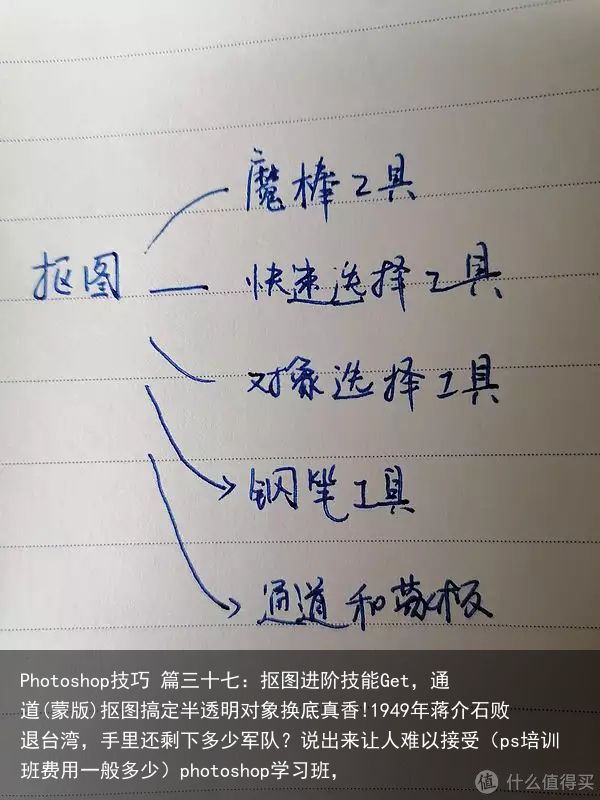 魔棒工具
抠图 快速选择工具
对象选择工具
钢笔工具
通道和蒙板
Photoshop技巧 篇三十七：抠图进阶技能Get，通
道(蒙版)抠图搞定半透明对象换底真香!1949年蒋介石败
退台湾，手里还剩下多少军队？说出来让人难以接受（ps培训
班费用一般多少）photoshop学习班，
值 什么值得买